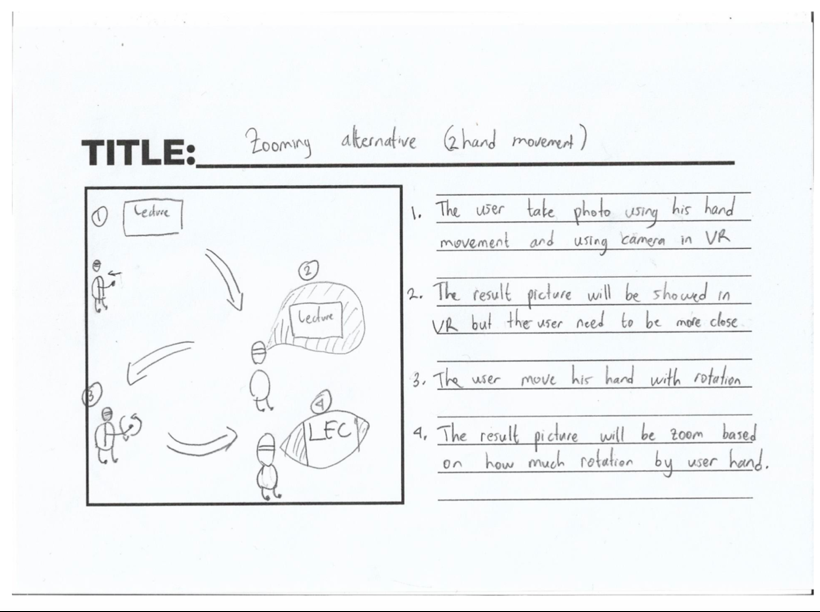 TITLE: Zooming alternative (2 hand movement)
1 Lecture
2
Lecture
3
4
LEC
1. The user take photo using his hand
movement and using camera in VR
2. The result picture will be showed in
VR but the user need to be more close
3. The user move his hand with rotation
4. The result picture will be zoom based
on how much rotation by user hand.